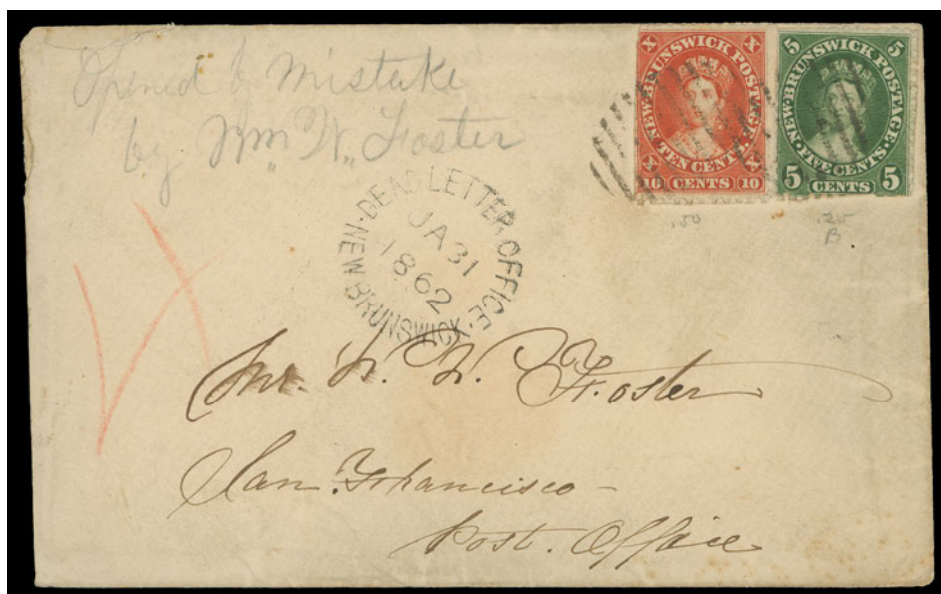 Opened by Mistake
by Wm. W. Foster
X NEW·BRUNSWICK POSTAGE X
X TEN CENTS. X
10 CENTS 10
5 NEW·BRUNSWICK POSTAGE· 5
FIVE CENTS·
5 CENTS 5
.50
.25
B
·DEAD LETTER OFFICE·
JA 31
1862
NEW BRUNSWICK
Mr. W. W. Foster
San Francisco
Post. Office